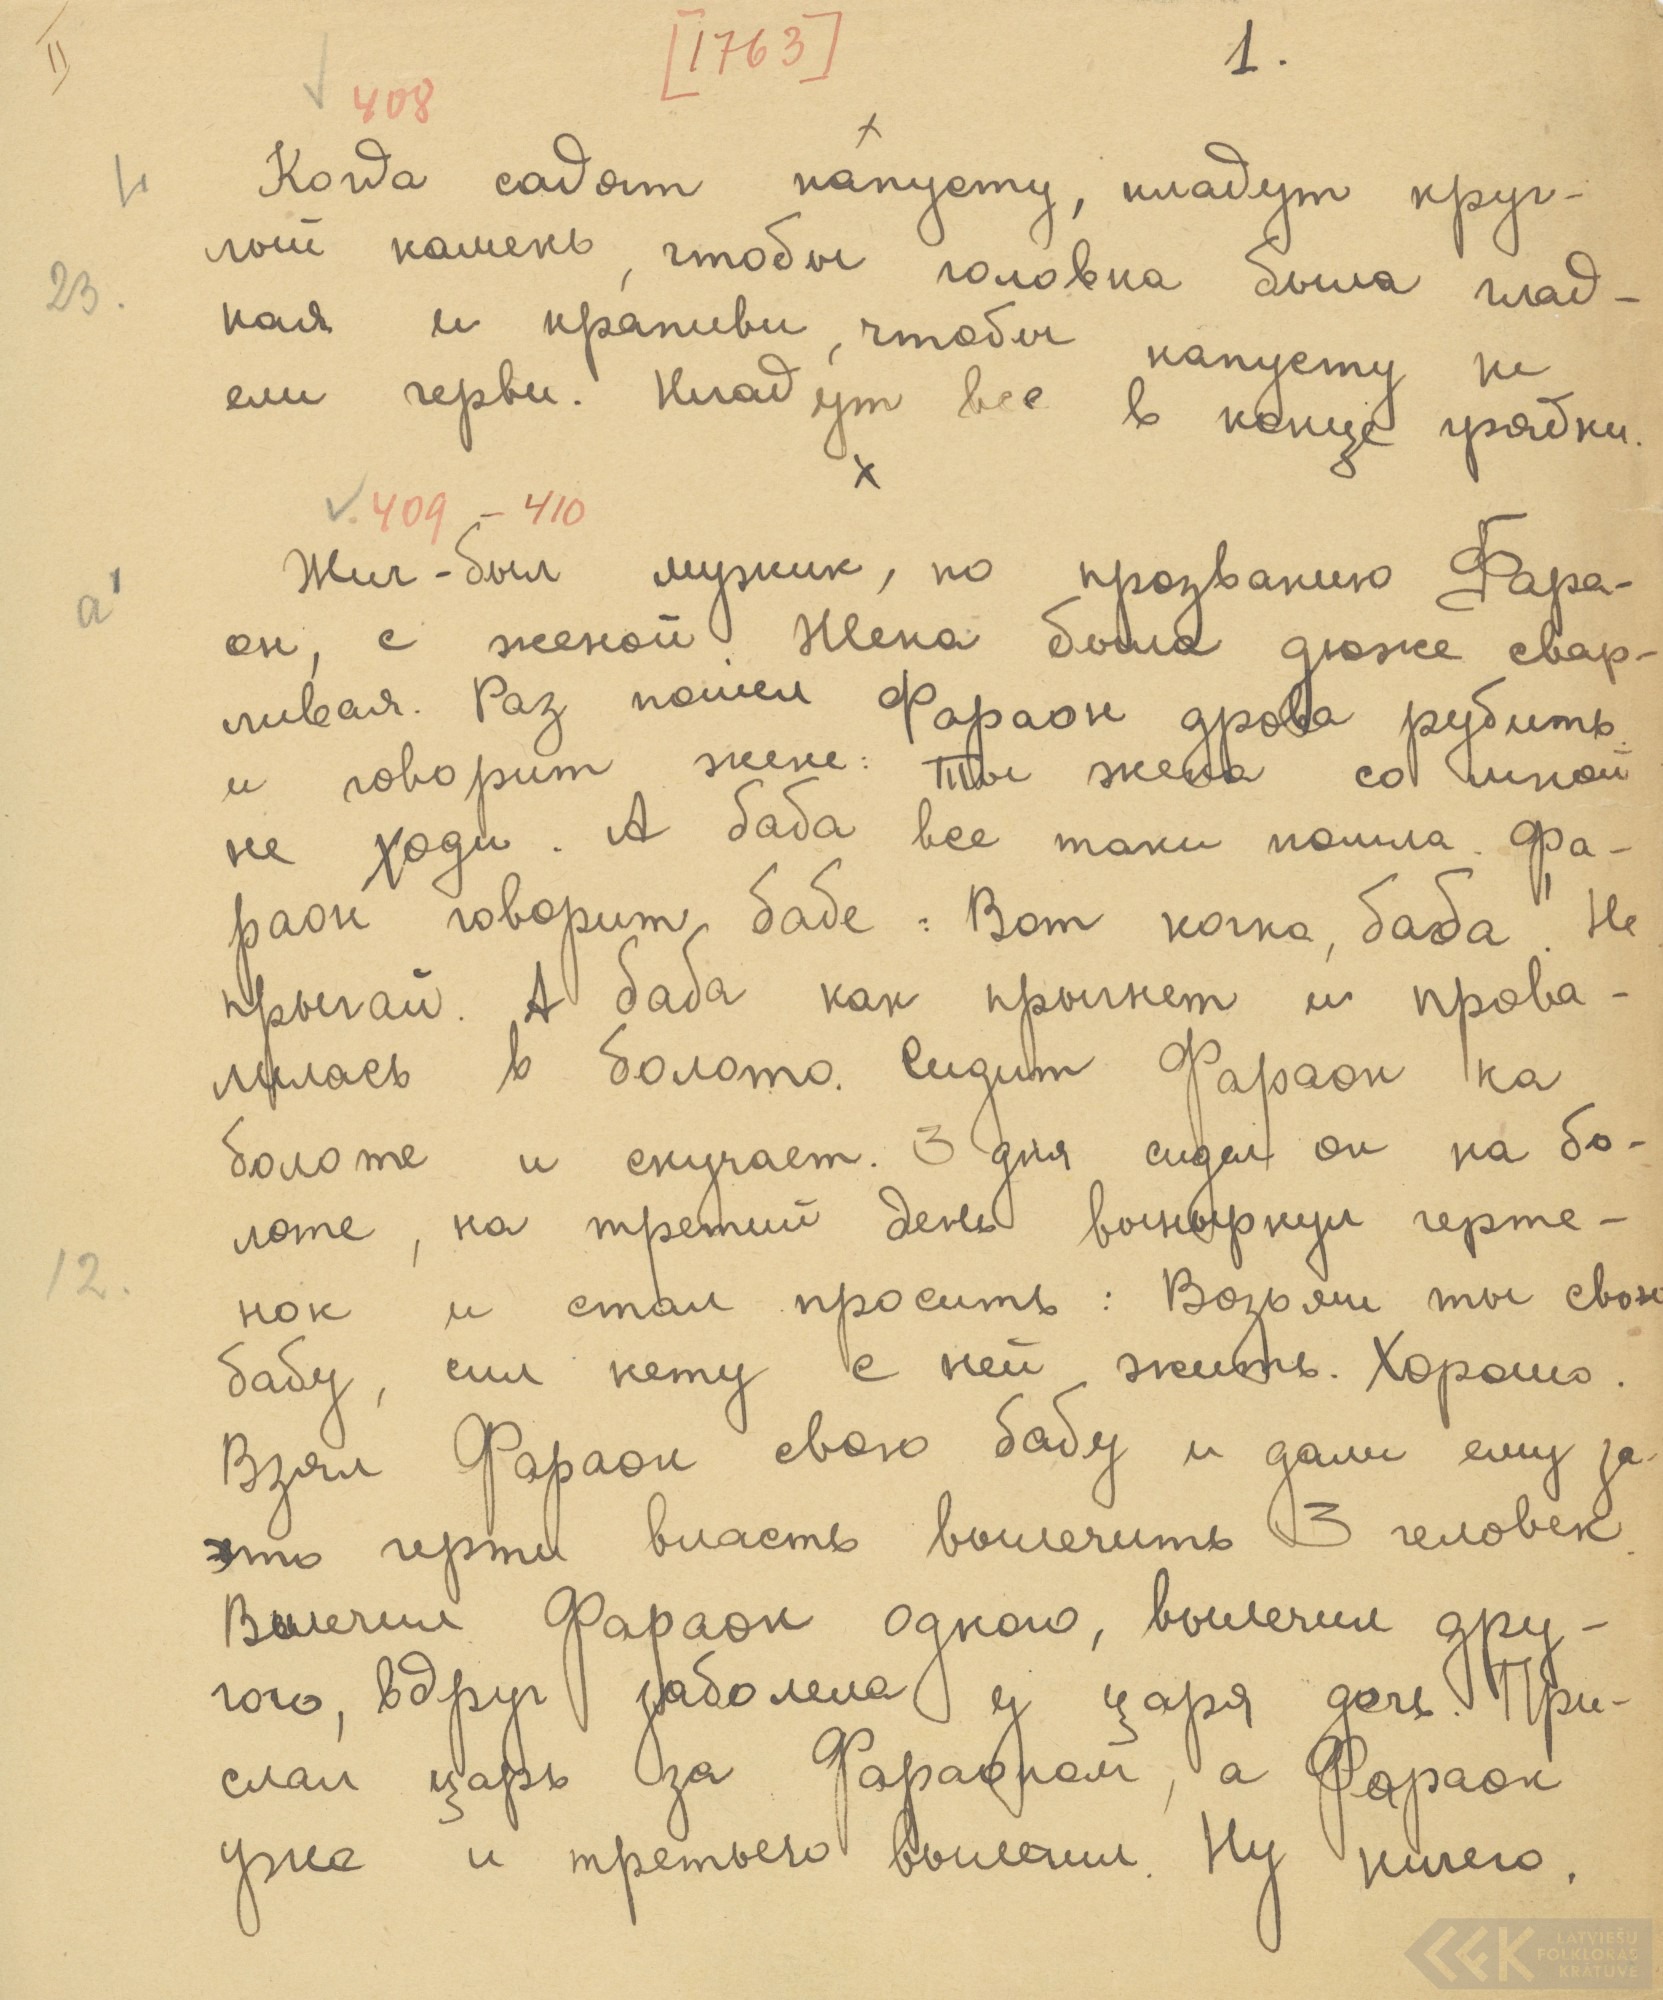 II
[1763]
1.
408
Когда садят капусту, кладут круг-
лый камень, чтобы головка была глад-
23.
кая и крапиви, чтобы капусту не
ели черви. Кладут все в конце грядки.
x
409 - 410
Жил-был мужик, по прозванию Фара-
а'
он, с женой. Жена была дюже свар-
ливая. Раз пошел Фараон дрова рубить
и говорит жене: Ты жена со мной
не ходи. А баба все таки пошла. Фа-
раон говорит бабе: Вот кочка, баба! Не
прыгай. А баба как прыгнет и прова-
лилась в болото. Сидит Фараон на
болоте и скучает. 3 дня сидел он на бо-
лоте, на третий день вынырнул черте-
12.
нок и стал просить: Возьми ты свою
бабу, сил нету с ней жить. Хорошо.
Взял Фараон свою бабу и дали ему за
это черти власть вылечить 3 человек.
Вылечил Фараон одного, вылечил дру-
гого, вдруг заболела у царя дочь. При-
слал царь за Фараоном, а Фараон
уже и третьего вылечил. Ну ничего.
LATVIEŠU
FOLKLORAS
KRĀTUVE